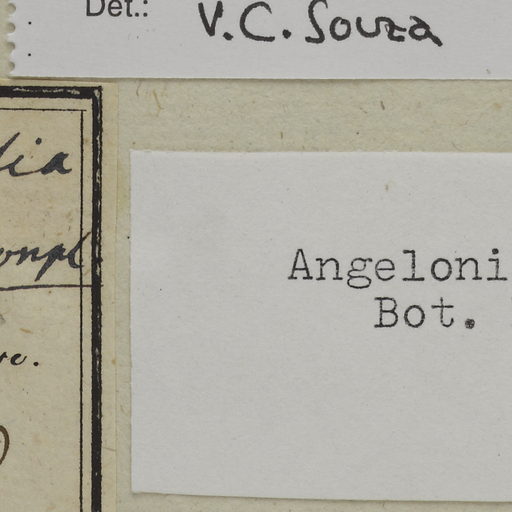 Det.: V.C. Souza
lia
onpl.
Angeloni
Bot.